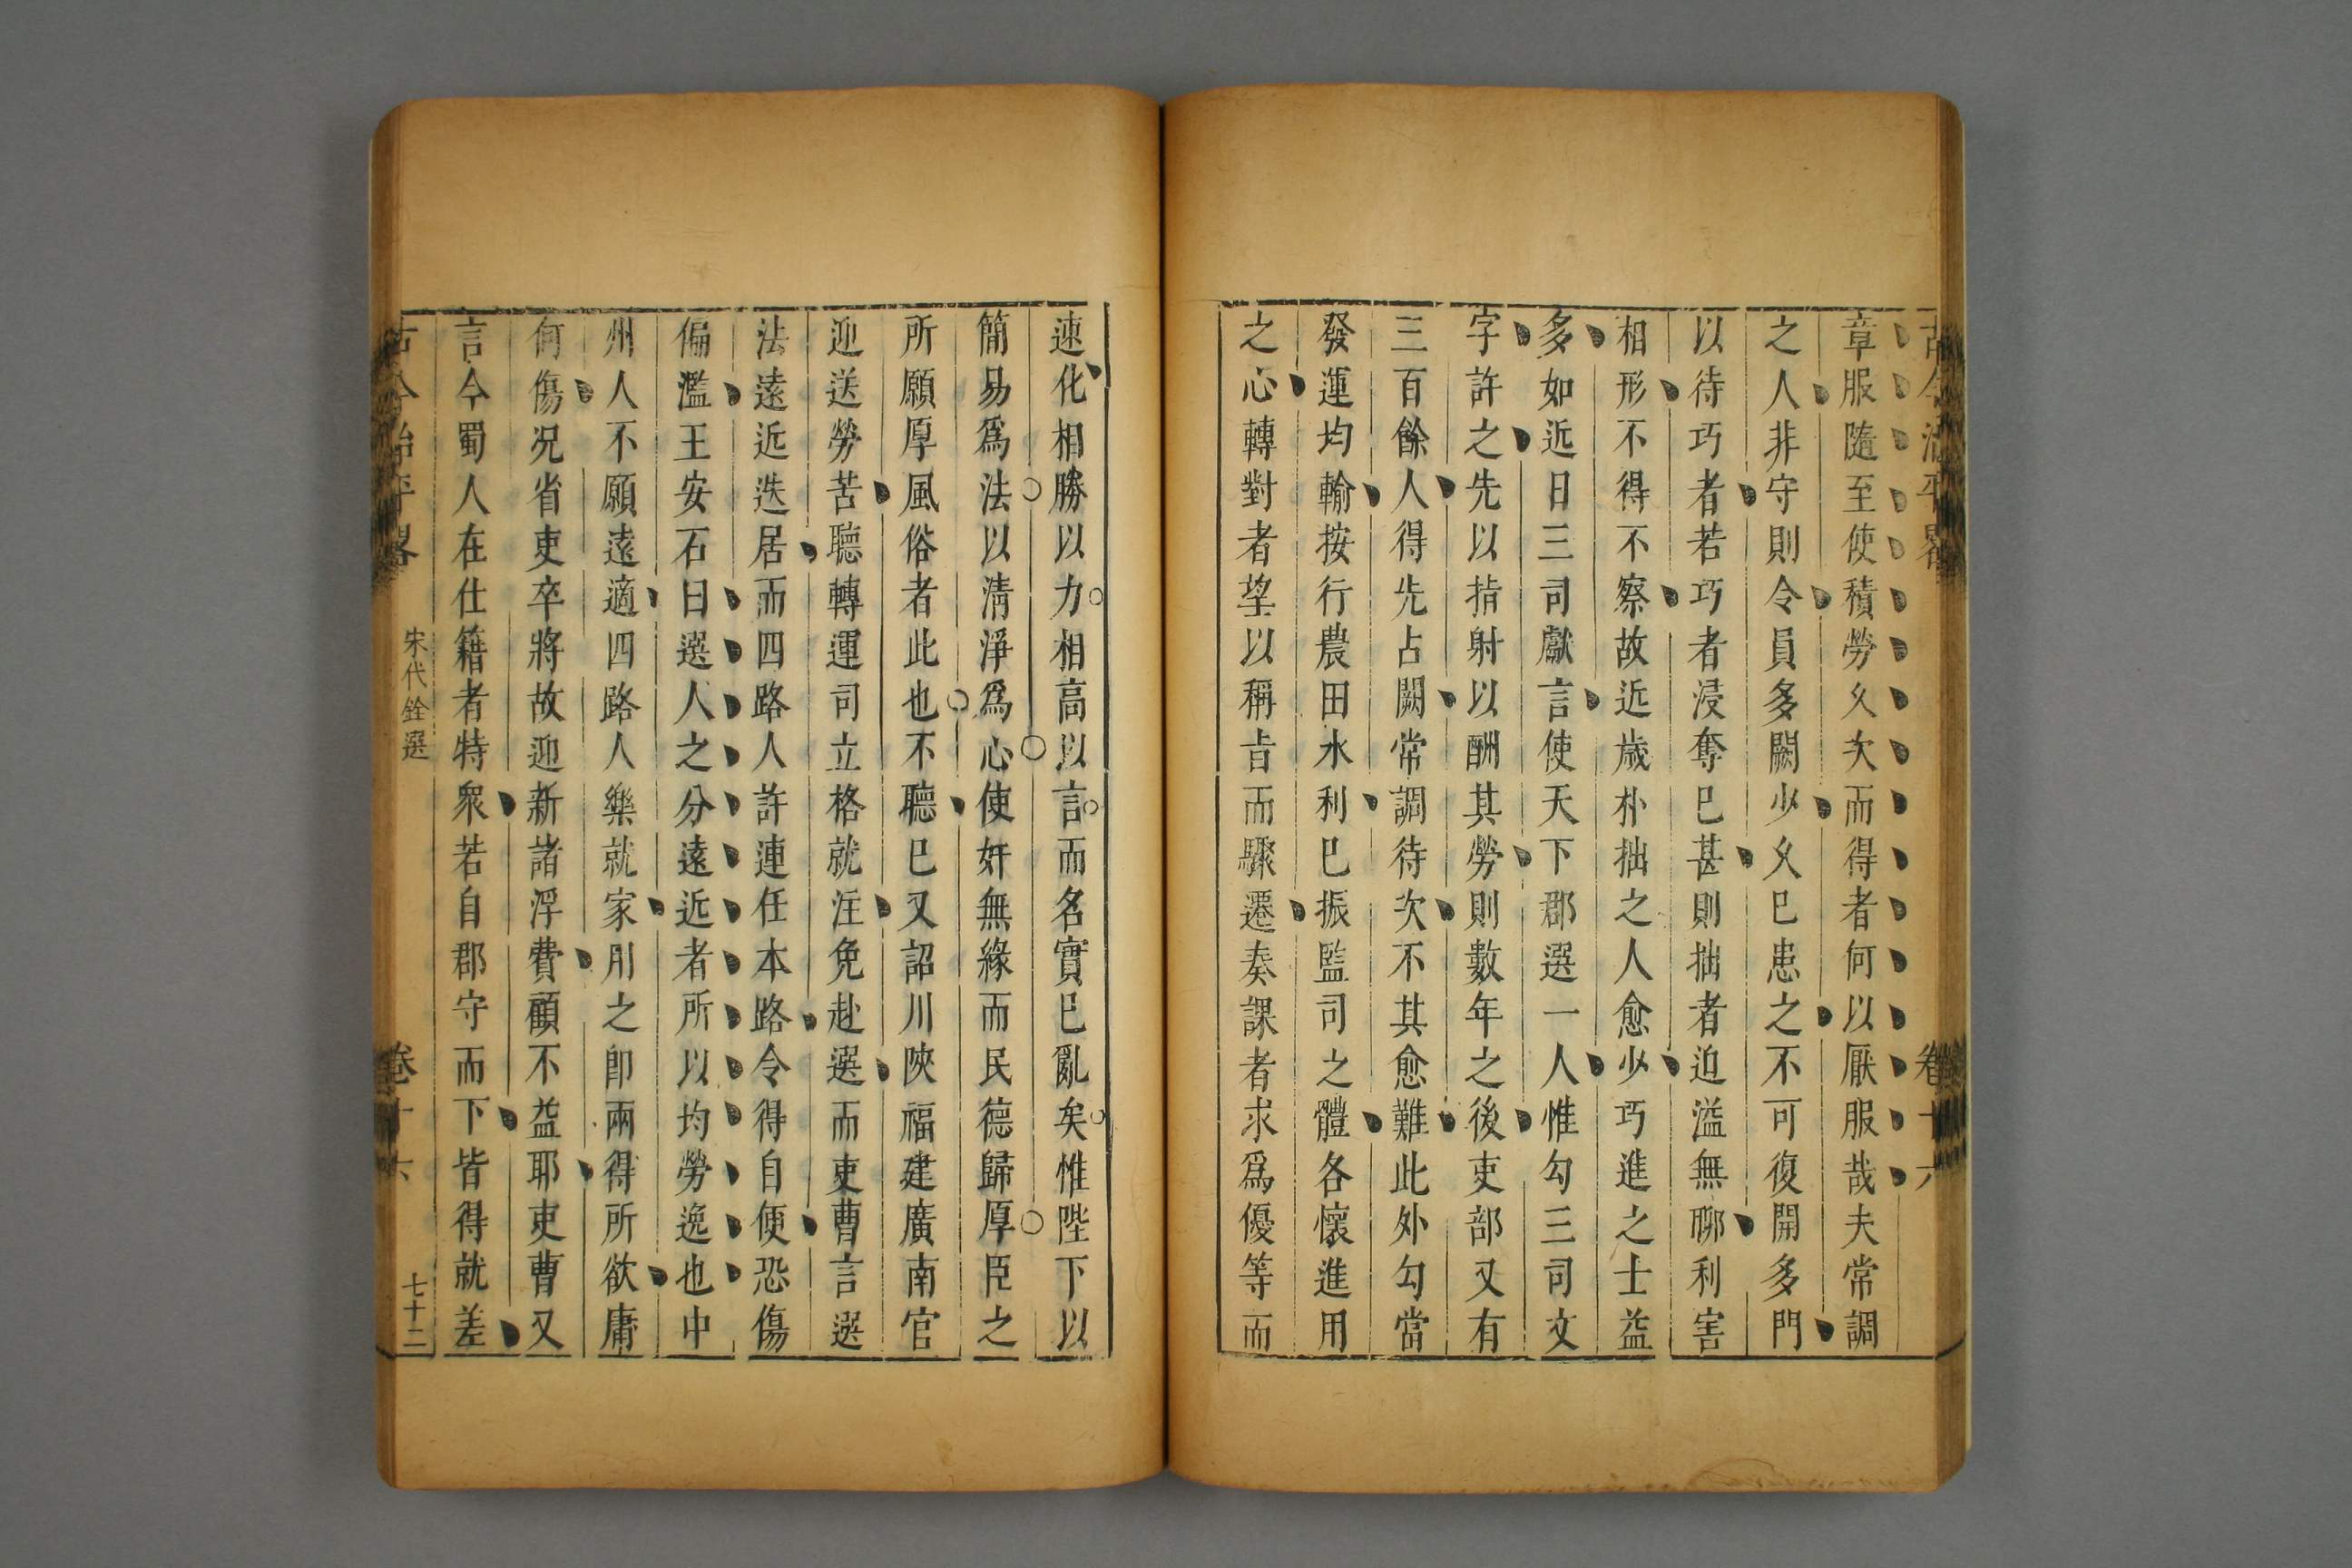 古今治平畧
卷十六
章服隨至使積勞久次而得者何以厭服哉夫常調
之人非守則令員多闕少久巳患之不可復開多門
以待巧者若巧者浸奪巳甚則拙者迫溢無聊利害
相形不得不察故近歲朴拙之人愈少巧進之士益
多如近日三司獻言使天下郡選一人惟勾三司文
字許之先以指射以酬其勞則數年之後吏部又有
三百餘人得先占闕常調待次不其愈難此外勾當
發運均輸按行農田水利巳振監司之體各懷進用
之心轉對者望以稱旨而驟遷奏課者求爲優等而
速化相勝以力相高以言而名實巳亂矣惟陛下以
簡易爲法以清淨爲心使奸無緣而民德歸厚臣之
所願厚風俗者此也不聽巳又詔川陝福建廣南官
迎送勞苦聽轉運司立格就注免赴選而吏曹言選
法遠近迭居而四路人許連任本路令得自便恐傷
偏濫王安石曰選人之分遠近者所以均勞逸也中
州人不願遠適四路人樂就家用之卽兩得所欲庸
何傷况省吏卒將故迎新諸浮費顧不益耶吏曹又
言今蜀人在仕籍者特衆若自郡守而下皆得就差
古今治平畧
宋代銓選
卷十六
七十二